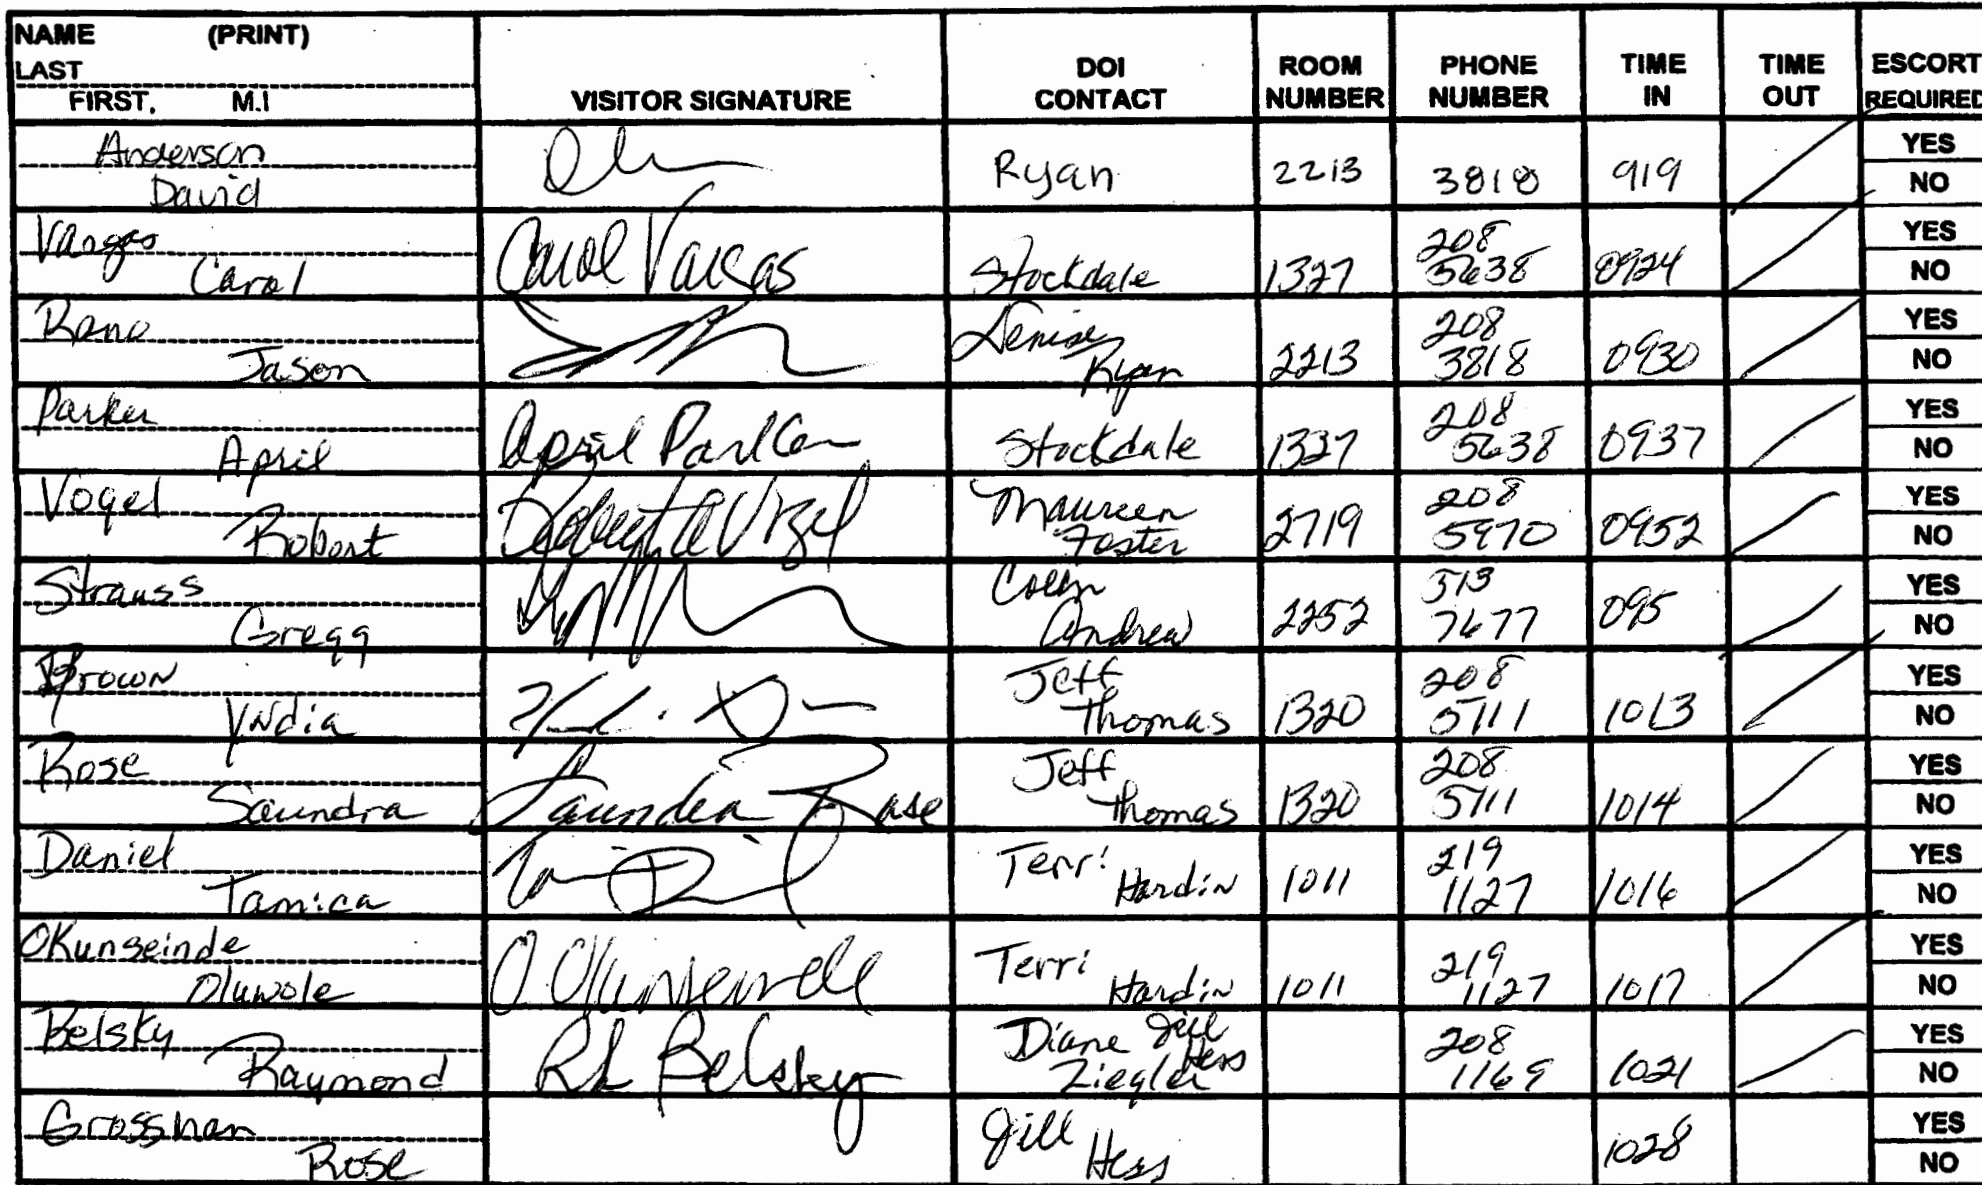 NAME (PRINT)
LAST
FIRST, M.I
VISITOR SIGNATURE
DOI
CONTACT
ROOM
NUMBER
PHONE
NUMBER
TIME
IN
TIME
OUT
ESCORT
REQUIRED
Anderson
David
Ryan
2213
3818
919
YES
NO
Vargas
Carol
Carol Vargas
Stockdale
1327
208
5638
0924
YES
NO
Rano
Jason
Denise
Ryan
2213
208
3818
0930
YES
NO
Parker
April
April Parker
Stockdale
1327
208
5638
0937
YES
NO
Vogel
Robert
Robert A Vogel
Maureen
Foster
2719
208
5970
0952
YES
NO
Strauss
Gregg
Andrew
2252
513
7677
095
YES
NO
Brown
Jeff
Thomas
1320
208
5711
1013
YES
NO
Rose
Saundra
Saundra Rose
Jeff
Thomas
1320
208
5711
1014
YES
NO
Daniel
Tamica
Terri
Hardin
1011
219
1127
1016
YES
NO
OKunseinde
Oluwole
Terri
Hardin
1011
219
1127
1017
YES
NO
Belsky
Raymond
Belsky
Diane Jill
Ziegler Hess
208
1169
1021
YES
NO
Grossman
Rose
Jill
Hess
1028
YES
NO